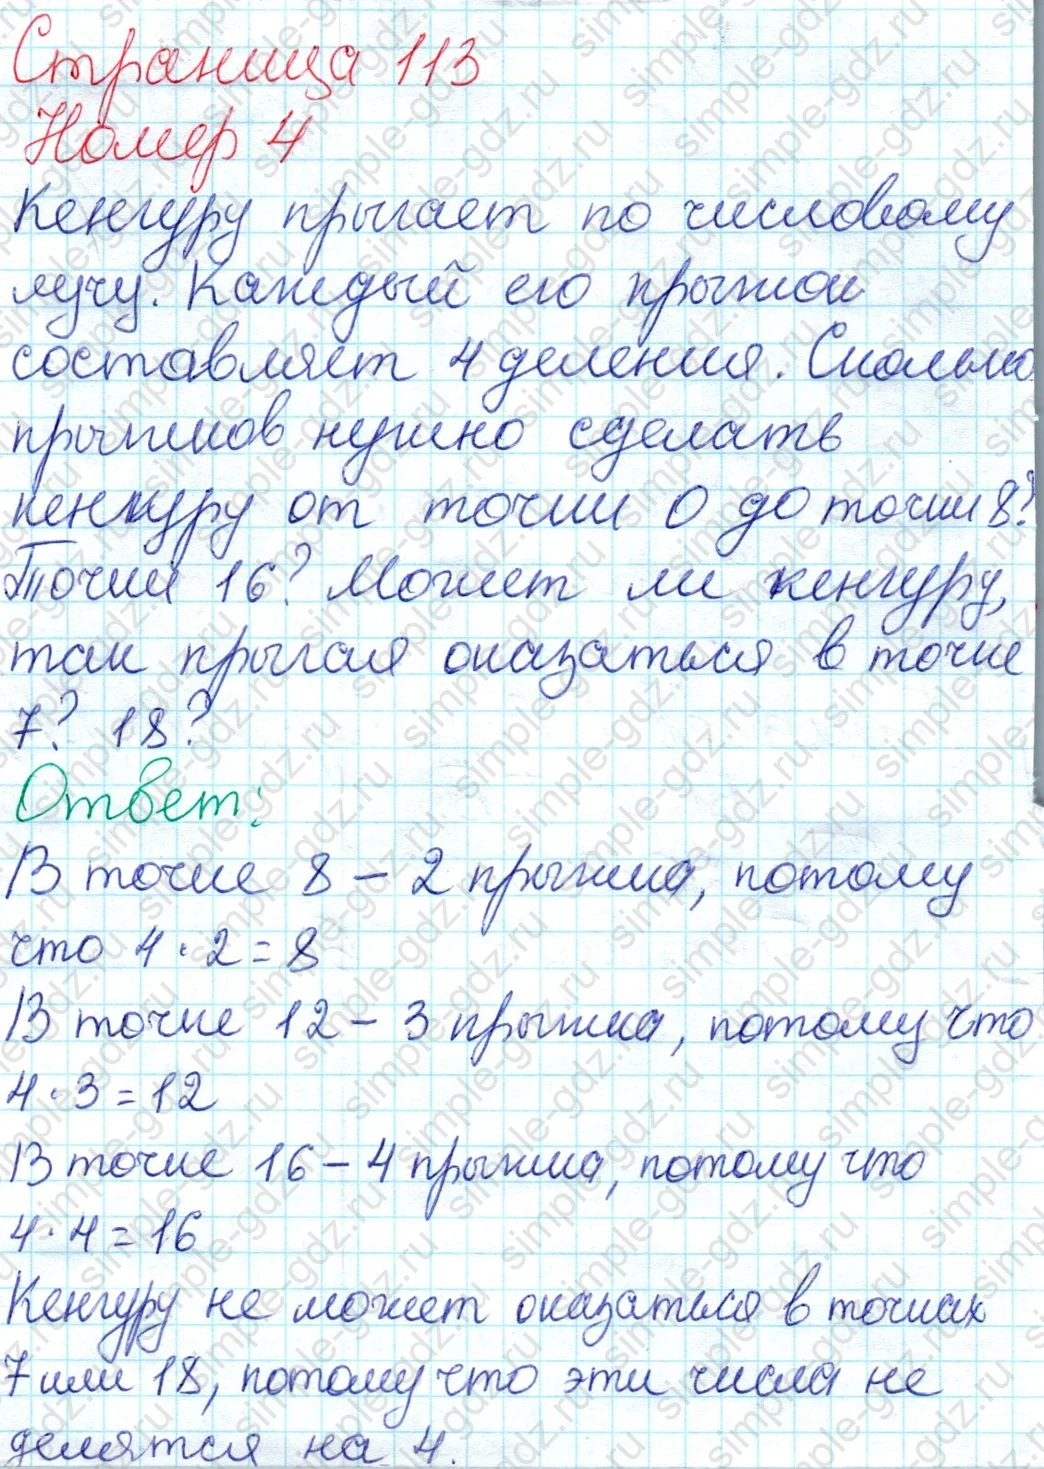 Страница 113
Номер 4
Кенгуру прыгает по числовому
лучу. Каждый его прыжок
составляет 4 деления. Сколько
прыжков нужно сделать
кенгуру от точки 0 до точки 8?
Точки 16? Может ли кенгуру,
так прыгая оказаться в точке
7? 18?
Ответ:
В точке 8 – 2 прыжка, потому
что 4 · 2 = 8
В точке 12 – 3 прыжка, потому что
4 · 3 = 12
В точке 16 – 4 прыжка, потому что
4 · 4 = 16
Кенгуру не может оказаться в точках
7 или 18, потому что эти числа не
делятся на 4.
simple-gdz.ru